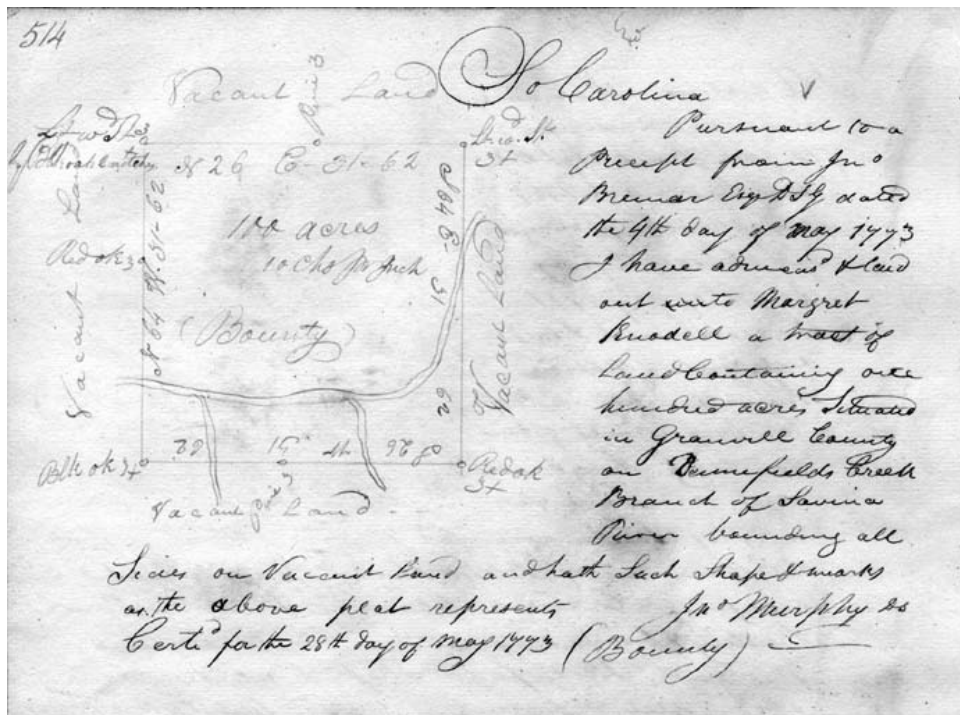 514
So Carolina
Vacant Land
Pine 3
N 26 E - 31 - 62
100 acres
10 Chs pr Inch
(Bounty)
Red ok 3
N 64 W. 31 - 62
Vacant Land
S 64 E 31 62
Vacant Land
3x
Blk ok 3x
S 26 W 31 62
Pine 3
Red ok
3x
Vacant Land
Pursuant to a
Precept from Jno
Bremar Esqr D S G dated
the 4th day of May 1773
I have admeasd & laid
out unto Margret
Knodell a tract of
Land Containing one
hundred acres Situated
in Granvill County
on Creek
Branch of Savina
River bounding all
Sides on Vacant Land and hath Such Shape & marks
as the above plat represents Jno Murphy Ds
Certd for the 28th day of May 1773 (Bounty)